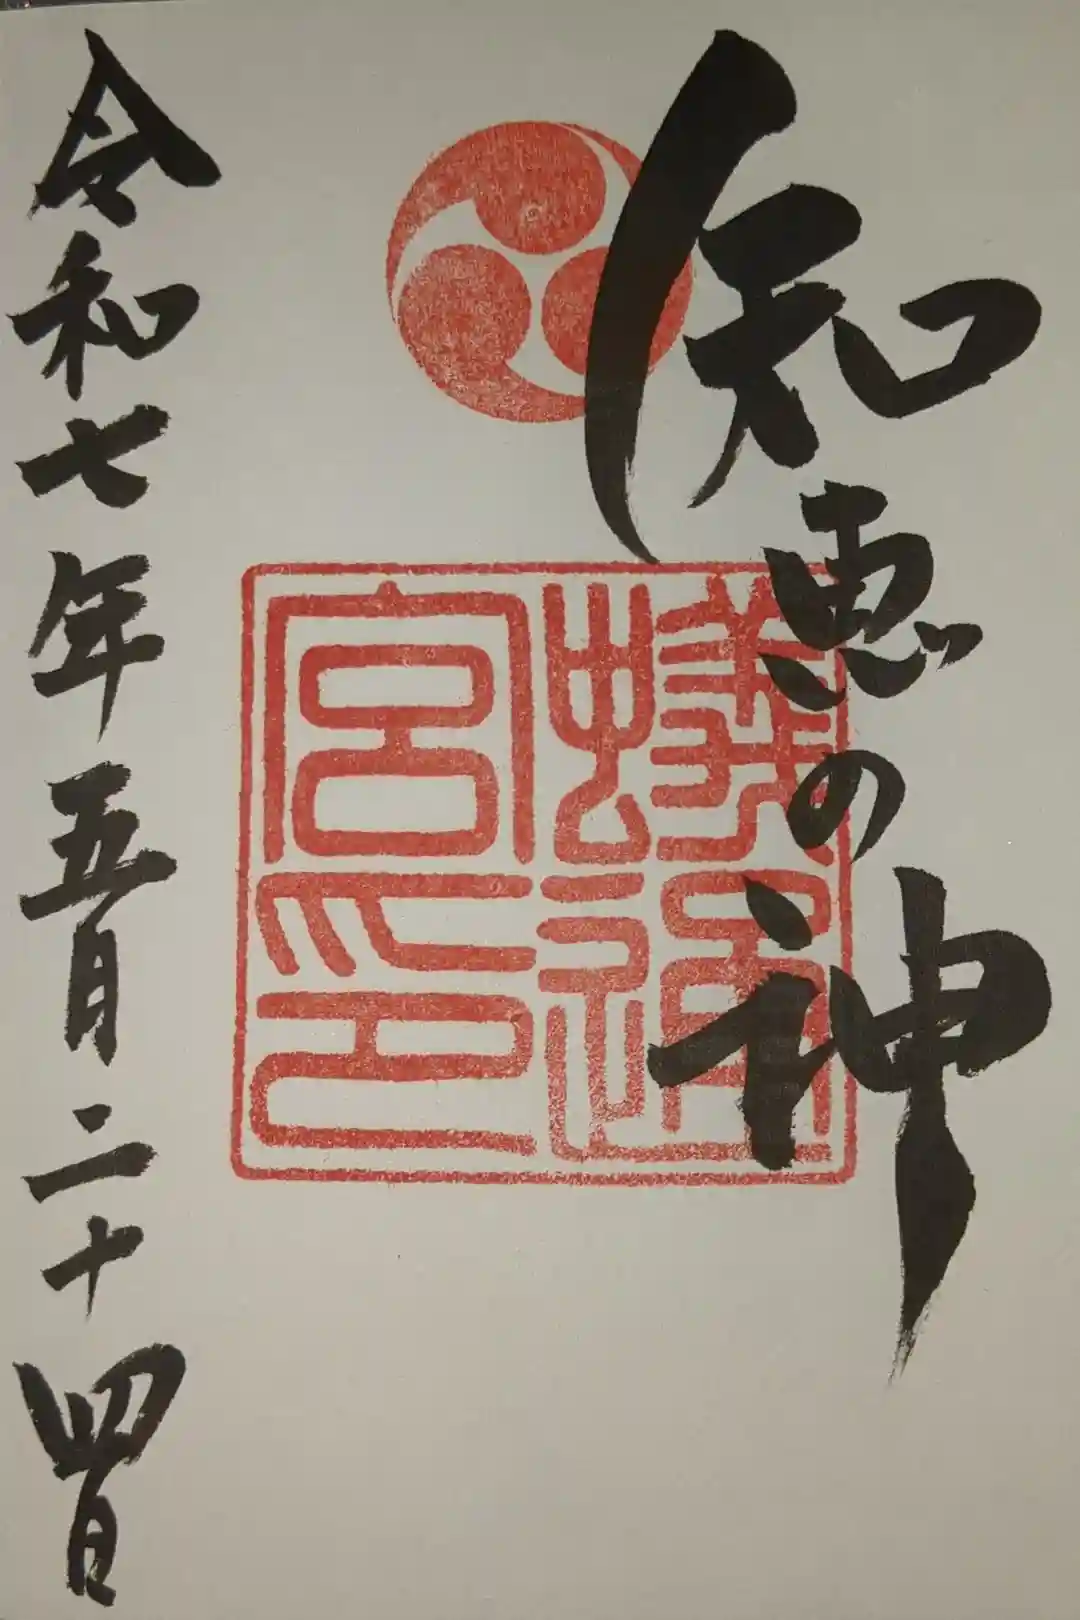 知恵の神
蟻通
宮印
令和七年五月二十四日